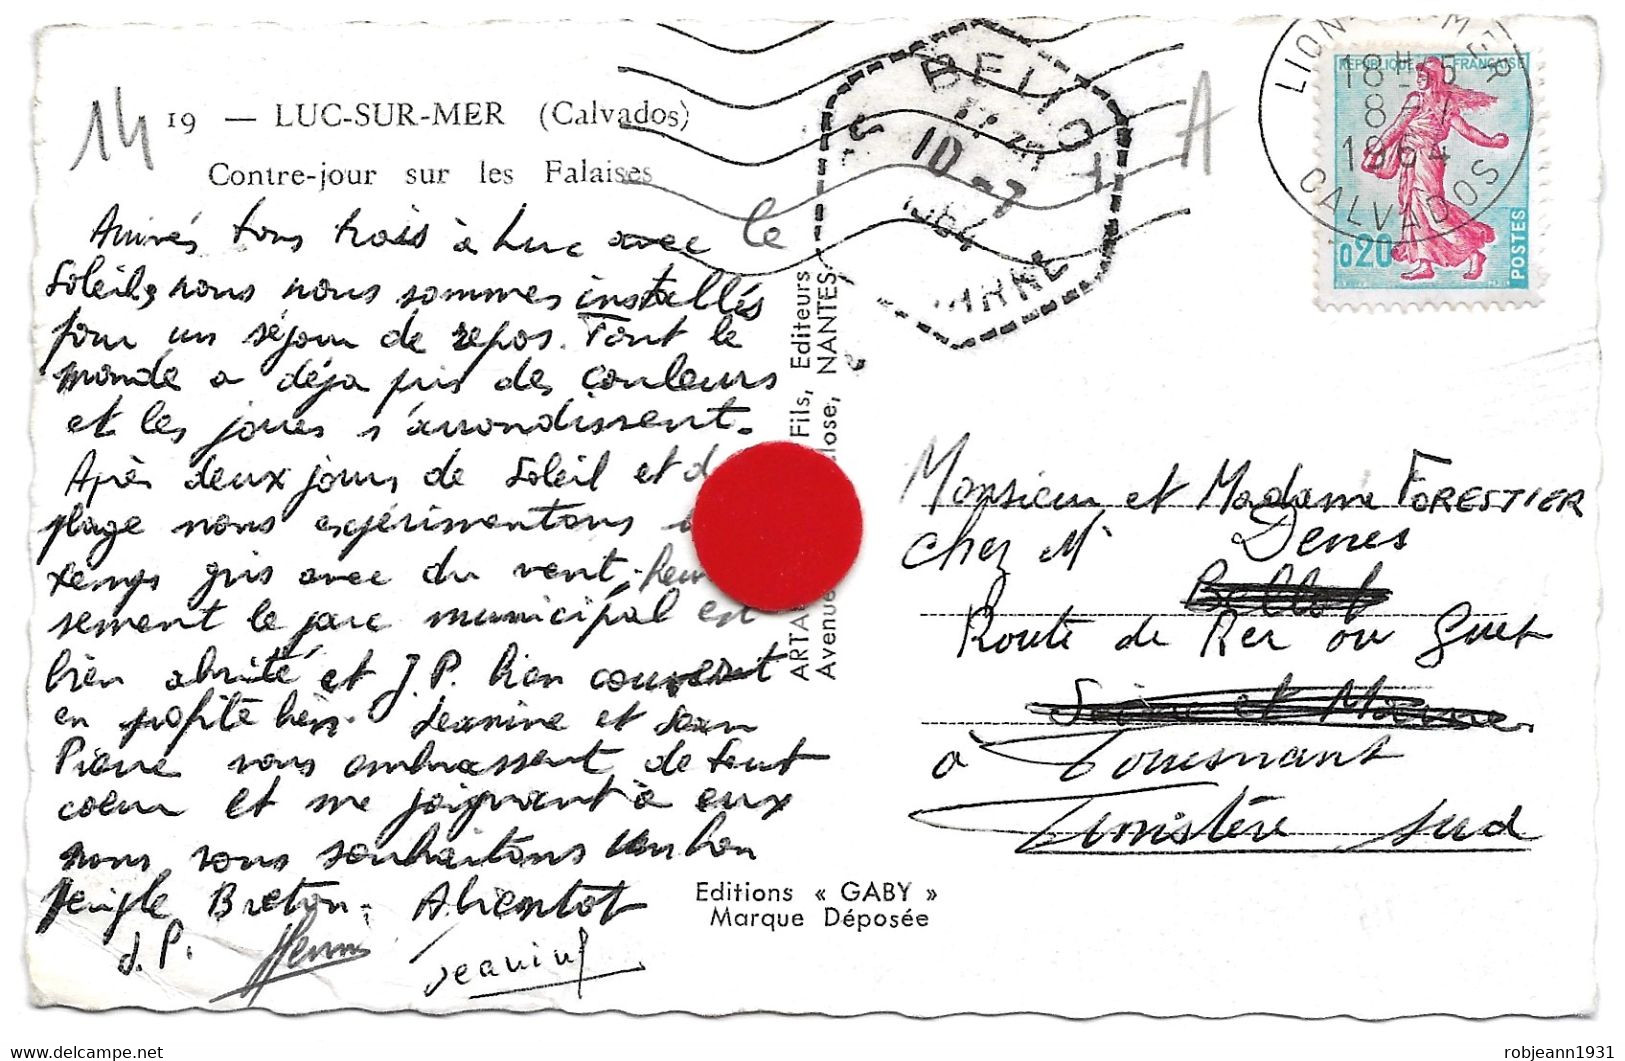 14
19 — LUC-SUR-MER (Calvados)
Contre-jour sur les Falaises
Arrivés tous trois à Luc avec le
soleil, nous nous sommes installés
pour un séjour de repos. Tout le
monde a déjà pris des couleurs
et les joues s'arrondissent.
Après deux jours de soleil et d
plage nous expérimentons
temps gris avec du vent, heu
sement le parc municipal est
bien abrité et J.P. bien couvert
en profite bien. Jeanine et Jean
Pierre vous embrassent de tout
coeur et me joignant à eux
nous vous souhaitons un bon
Breton. A bientôt
J.P. Henri Jeanine
ARTA Fils, Editeurs
Avenue alose, NANTES
Editions « GABY »
Marque Déposée
BELLOT
10 -7
1964
MARNE
A
LION MER
18H45
8 - 7
1964
CALVADOS
REPUBLIQUE FRANÇAISE
0,20
POSTES
Monsieur et Madame FORESTIER
chez Mr Denes
Bellot
Route de Ker ou Guet
Seine et Marne
à Fouesnant
Finistère Sud
robjeann1931
delcampe.net